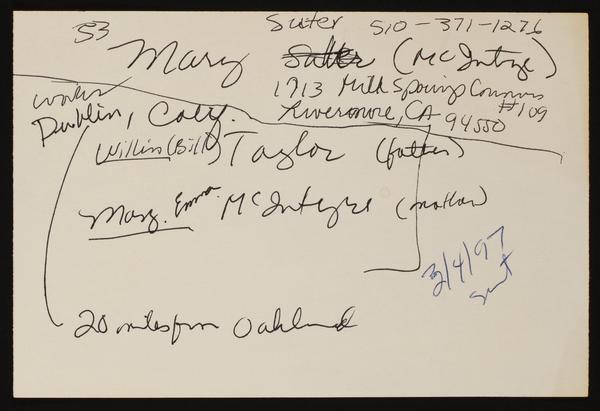 53
Suter 510-371-1276
Mary Sutter (McIntyre)
1713 Mill Springs Commons
#109
Livermore, CA 94550
works
Dublin, Calif.
William (Bill) Taylor (father)
Mary Emma McIntyre (mother)
3/4/97
sent
20 miles from Oakland